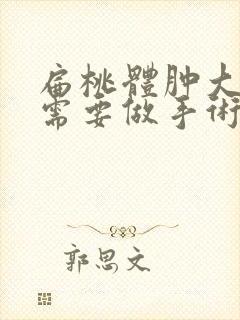 扁桃體肿大
需要做手術
郭思文